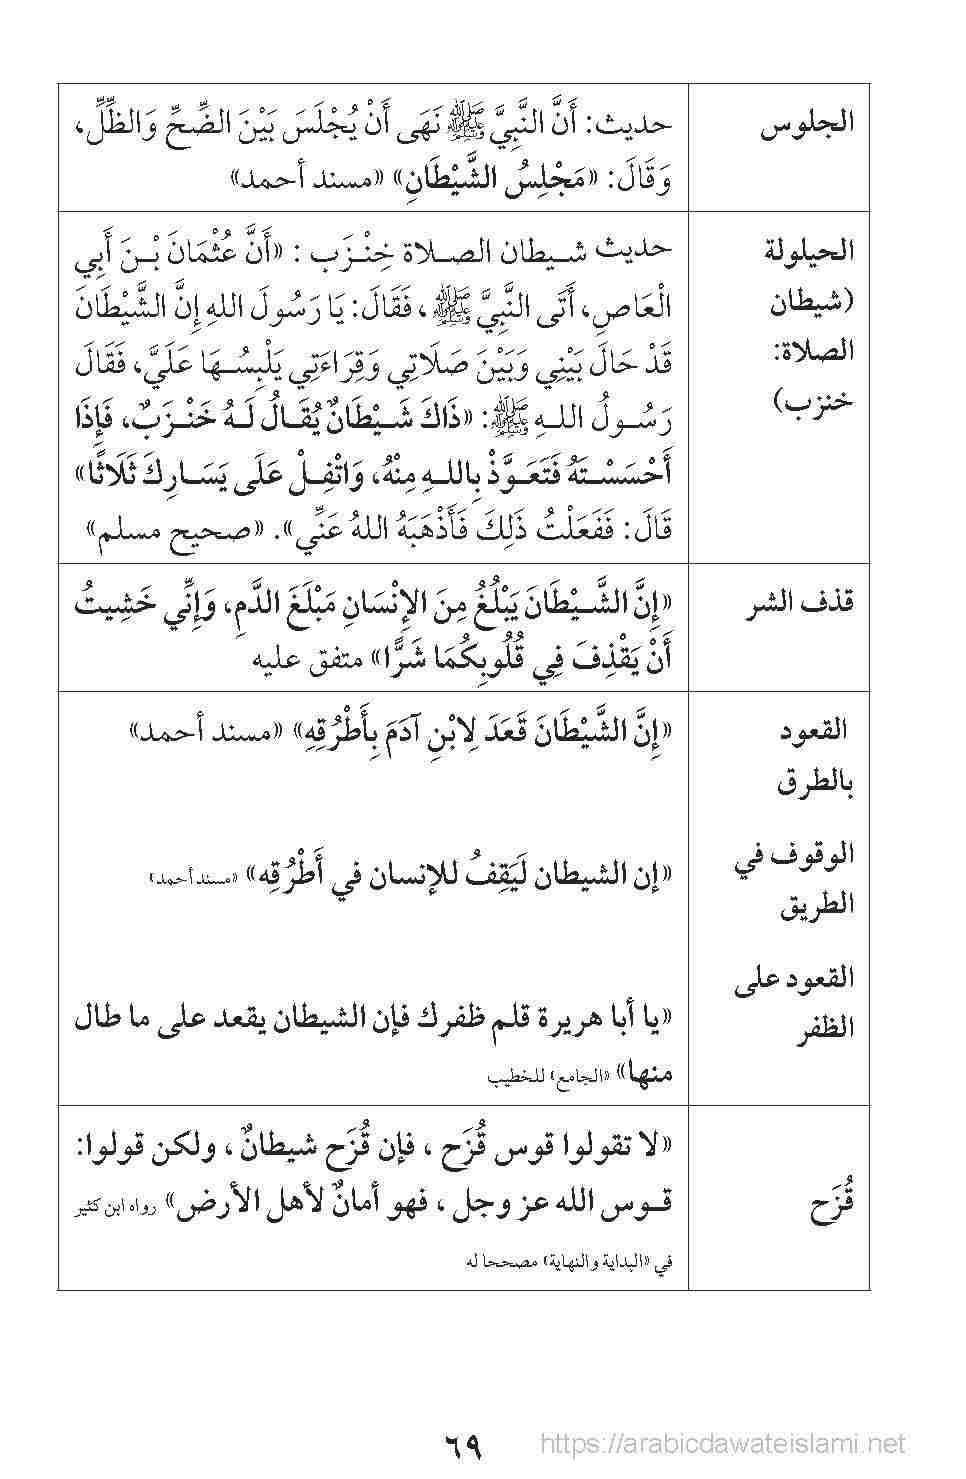 الجلوس
حديث: أَنَّ النَّبِيَّ ﷺ نَهَى أَنْ يُجْلَسَ بَيْنَ الضِّحِّ وَالظِّلِّ،
وَقَالَ: «مَجْلِسُ الشَّيْطَانِ» «مسند أحمد»
الحيلولة
(شيطان
الصلاة:
خنزب)
حديث شيطان الصلاة خِنْزَب : «أَنَّ عُثْمَانَ بْنَ أَبِي
الْعَاصِ، أَتَى النَّبِيَّ ﷺ، فَقَالَ: يَا رَسُولَ اللهِ إِنَّ الشَّيْطَانَ
قَدْ حَالَ بَيْنِي وَبَيْنَ صَلَاتِي وَقِرَاءَتِي يَلْبِسُهَا عَلَيَّ، فَقَالَ
رَسُولُ اللهِ ﷺ: «ذَاكَ شَيْطَانٌ يُقَالُ لَهُ خَنْزَبٌ، فَإِذَا
أَحْسَسْتَهُ فَتَعَوَّذْ بِاللهِ مِنْهُ، وَاتْفِلْ عَلَى يَسَارِكَ ثَلَاثًا»
قَالَ: فَفَعَلْتُ ذَلِكَ فَأَذْهَبَهُ اللهُ عَنِّي». «صحيح مسلم»
قذف الشر
«إِنَّ الشَّيْطَانَ يَبْلُغُ مِنَ الإِنْسَانِ مَبْلَغَ الدَّمِ، وَإِنِّي خَشِيتُ
أَنْ يَقْذِفَ فِي قُلُوبِكُمَا شَرًّا» متفق عليه
القعود
بالطرق
«إِنَّ الشَّيْطَانَ قَعَدَ لِابْنِ آدَمَ بِأَطْرُقِهِ» «مسند أحمد»
الوقوف في
الطريق
«إن الشيطان لَيَقِفُ للإنسان في أَطْرُقِه» «مسند أحمد»
القعود على
الظفر
«يا أبا هريرة قلم ظفرك فإن الشيطان يقعد على ما طال
منها» «الجامع» للخطيب
قُزَح
«لا تقولوا قوس قُزَح ، فإن قُزَح شيطانٌ ، ولكن قولوا:
قوس الله عز وجل ، فهو أمانٌ لأهل الأرض» رواه ابن كثير
في «البداية والنهاية» مصححا له
٦٩
https://arabicdawateislami.net